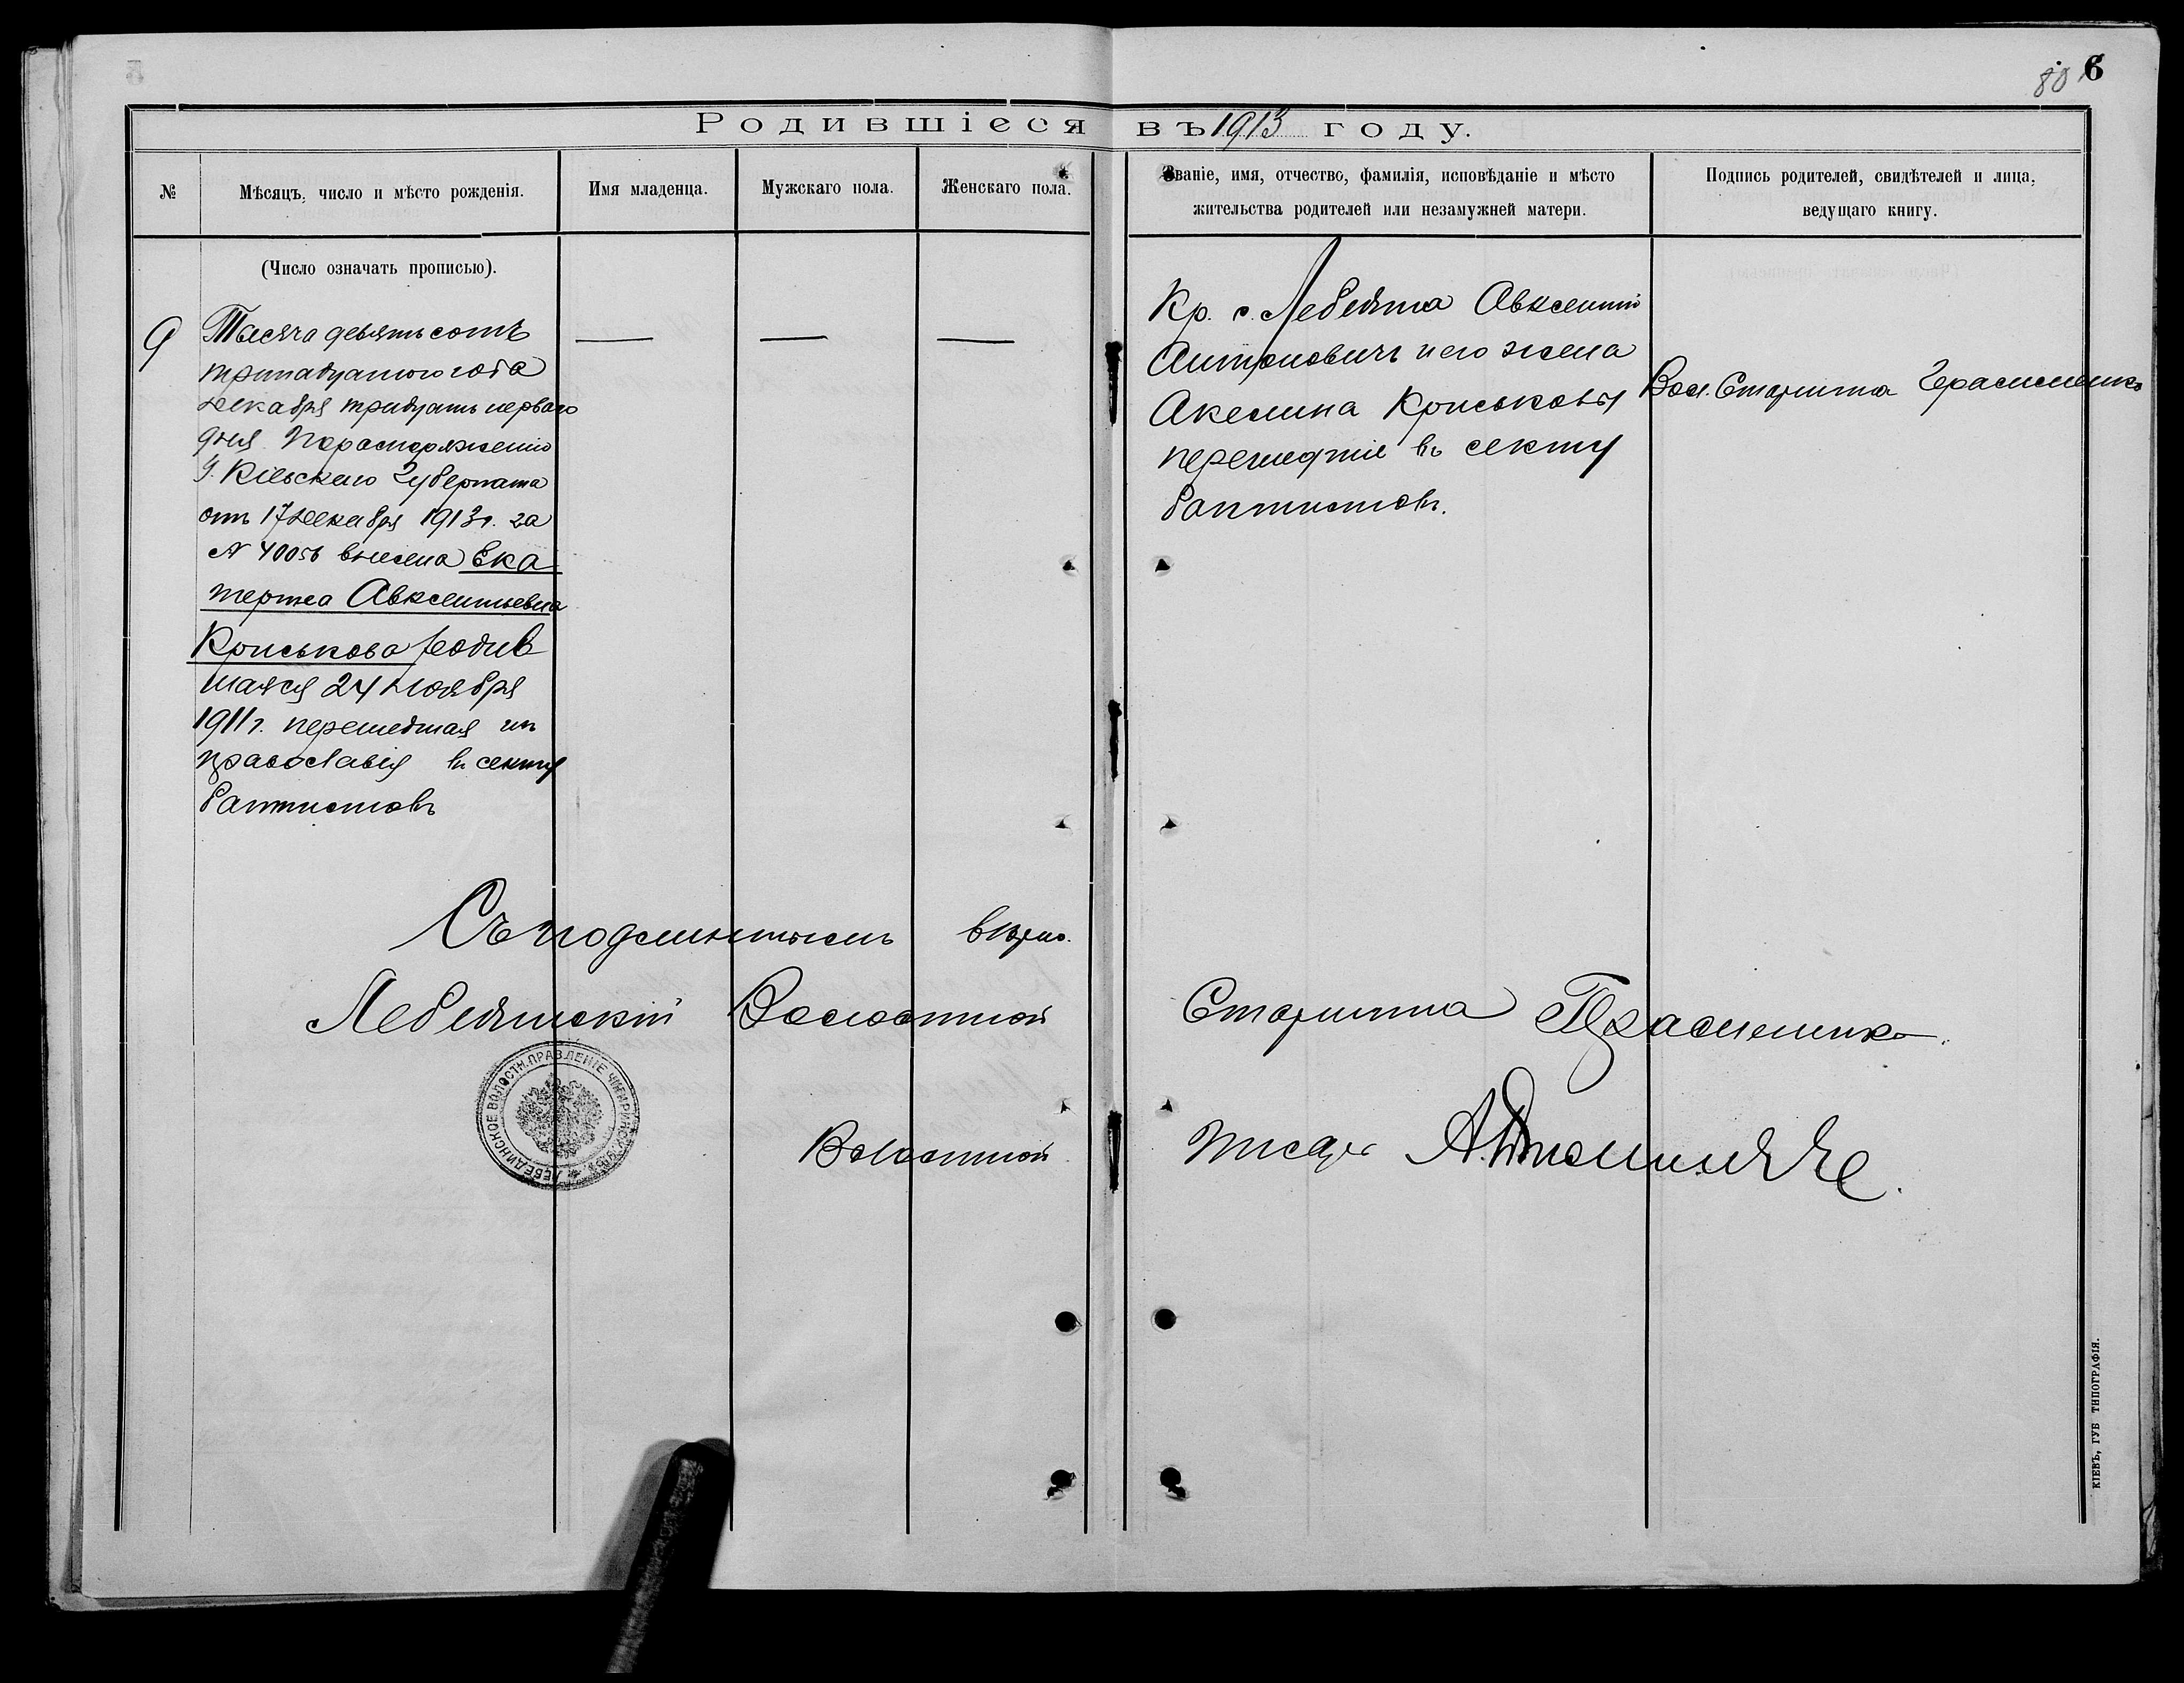 80 6
Родившіеся въ 1913 году.
№
Мѣсяцъ, число и мѣсто рожденія.
Имя младенца.
Мужскаго пола.
Женскаго пола.
Званіе, имя, отчество, фамилія, исповѣданіе и мѣсто
жительства родителей или незамужней матери.
Подпись родителей, свидѣтелей и лица,
ведущаго книгу.
(Число означать прописью).
9
Тысяча девятьсотъ
тринадцатого года
декабря тридцать перваго
дня. По распоряженію
Г. Кіевскаго Губернатора
отъ 17 декабря 1913 г. за
№ 40056 внесена Ека
терина Авксентьевна
Криськова родив
шаяся 24 ноября
1911 г. перешедшая изъ
православія въ секту
баптистовъ
Кр. с. Лебедина Авксентій
Антоновичъ и его жена
Акелина Криськовы
перешедшіе въ секту
баптистовъ.
Вол. Старшина Герасименко
Съ подлиннымъ вѣрно.
Лебединскій Волостной Старшина Герасименко.
ЛЕБЕДИНСКОЕ ВОЛОСТН. ПРАВЛЕНІЕ ЧИГИРИНСК. УѢЗ.
Волостной писарь
КІЕВЪ, ГУБ ТИПОГРАФІЯ.